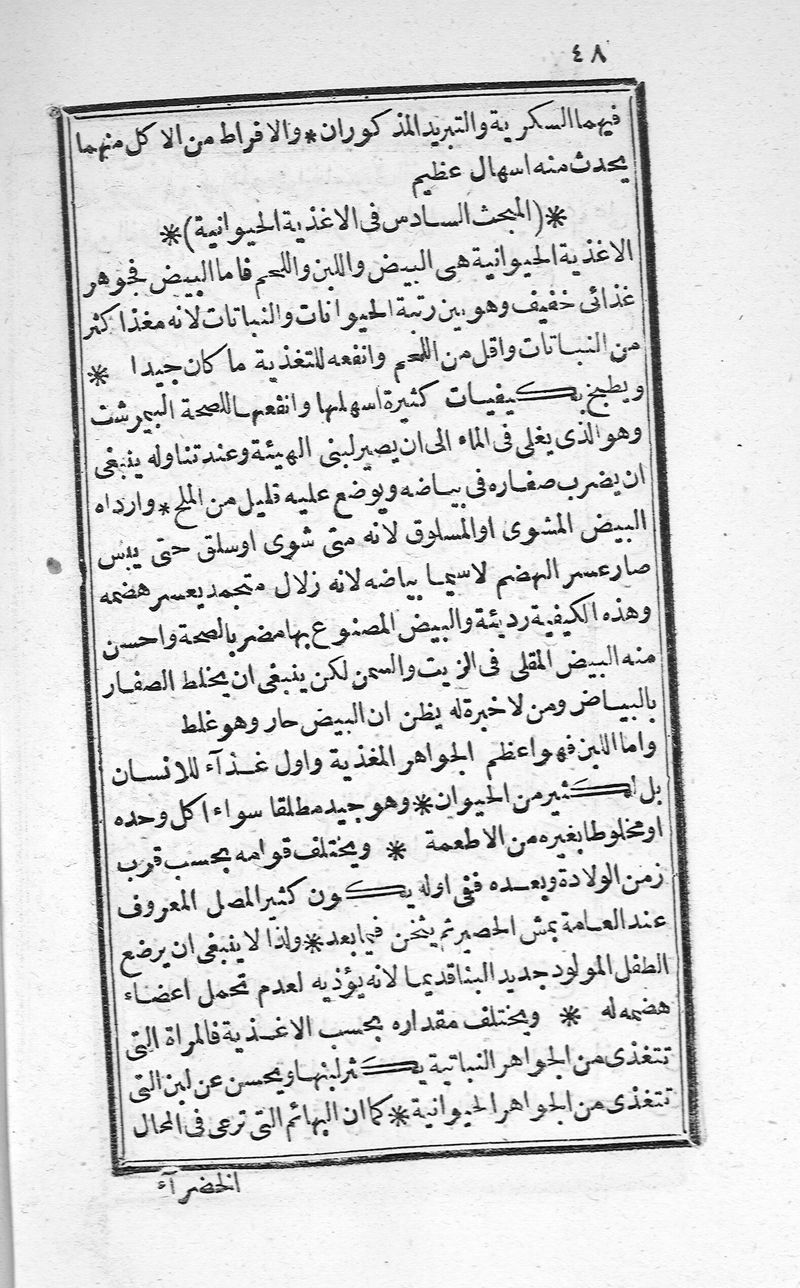 ٤٨
فيهما السكرية والتبريد المذكوران * والافراط من الاكل منهما
يحدث منه اسهال عظيم
*(المبحث السادس فى الاغذية الحيوانية)*
الاغذية الحيوانية هى البيض واللبن واللحم فاما البيض فجوهر
غذائى خفيف وهو بين رتبة الحيوانات والنباتات لانه مغذ اكثر
من النباتات واقل من اللحم وانفعه للتغذية ما كان جيدا *
ويطبخ بكيفيات كثيرة اسهلها وانفعها للصحة البيمرشت
وهو الذى يغلى فى الماء الى ان يصير لبنى الهيئة وعند تناوله ينبغى
ان يضرب صفاره فى بياضه ويوضع عليه قليل من الملح * وارداه
البيض المشوى او المسلوق لانه متى شوى او سلق حتى يبس
صار عسر الهضم لاسيما بياضه لانه زلال متجمد يعسر هضمه
وهذه الكيفية رديئة والبيض المصنوع بها مضر بالصحة واحسن
منه البيض المقلى فى الزيت والسمن لكن ينبغى ان يخلط الصفار
بالبياض ومن لا خبرة له يظن ان البيض حار وهو غلط
واما اللبن فهو اعظم الجواهر المغذية واول غذآء للانسان
بل لكثير من الحيوان * وهو جيد مطلقا سواء اكل وحده
او مخلوطا بغيره من الاطعمة * ويختلف قوامه بحسب قرب
زمن الولادة وبعده ففى اوله يكون كثير المصل المعروف
عند العامة بمش الحصير ثم يثخن فيما بعد * ولذا لا ينبغى ان يرضع
الطفل المولود جديد البنا قديما لانه يؤذيه لعدم تحمل اعضاء
هضمه له * ويختلف مقداره بحسب الاغذية فالمراة التى
تتغذى من الجواهر النباتية يكثر لبنها ويحسن عن لبن التى
تتغذى من الجواهر الحيوانية * كما ان البهائم التى ترعى فى المحال
الخضرآء